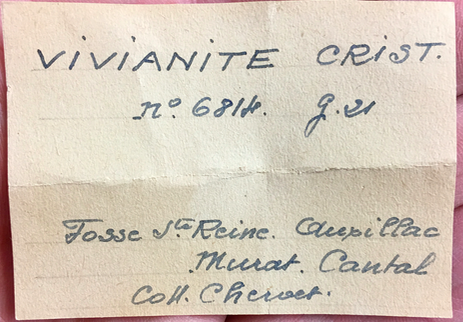 VIVIANITE CRIST.
n° 6814. G.21
Fosse Ste Reine. Auxillac
Murat. Cantal
Coll. Chervet.